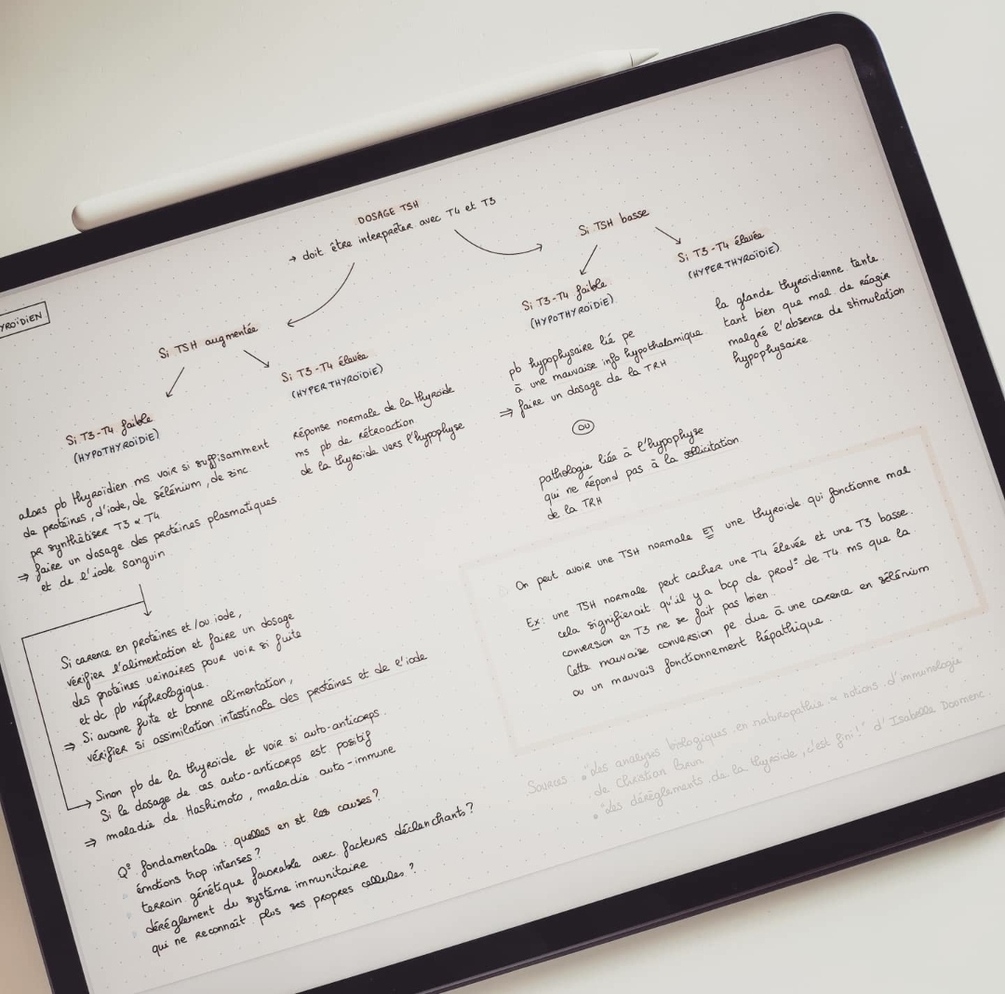 YROÏDIEN
DOSAGE TSH
→ doit être interpréter avec T4 et T3
Si TSH augmentée
Si T3-T4 faible
(HYPOTHYROÏDIE)
alors pb thyroïdien ms voir si suffisamment
de protéines, d'iode, de sélénium, de zinc
pr synthétiser T3 & T4
⇒ faire un dosage des protéines plasmatiques
et de l'iode sanguin
Si T3-T4 élevée
(HYPERTHYROÏDIE)
réponse normale de la thyroïde
ms pb de rétroaction
de la thyroïde vers l'hypophyse
Si carence en protéines et/ou iode,
vérifier l'alimentation et faire un dosage
des protéines urinaires pour voir si fuite
et dc pb néphrologique.
⇒ Si aucune fuite et bonne alimentation,
vérifier si assimilation intestinale des protéines et de l'iode
Sinon pb de la thyroïde et voir si auto-anticorps
Si le dosage de ces auto-anticorps est positif
⇒ maladie de Hashimoto, maladie auto-immune
Q° fondamentale : quelles en st les causes?
émotions trop intenses?
terrain génétique favorable avec facteurs déclenchants?
déréglement du système immunitaire
qui ne reconnaît plus ses propres cellules?
Si TSH basse
Si T3-T4 faible
(HYPOTHYROÏDIE)
pb hypophysaire lié pe
à une mauvaise info hypothalamique
⇒ faire un dosage de la TRH
OU
pathologie liée à l'hypophyse
qui ne répond pas à la sollicitation
de la TRH
Si T3-T4 élevée
(HYPERTHYROÏDIE)
la glande thyroïdienne tente
tant bien que mal de réagir
malgré l'absence de stimulation
hypophysaire
On peut avoir une TSH normale ET une thyroïde qui fonctionne mal
Ex : une TSH normale peut cacher une T4 élevée et une T3 basse.
cela signifierait qu'il y a bcp de prod° de T4 ms que la
conversion en T3 ne se fait pas bien.
Cette mauvaise conversion pe due à une carence en sélénium
ou un mauvais fonctionnement hépathique.
Sources • "des analyses biologiques en naturopathie" "notions d'immunologie"
de Christian Brun
• "des dérèglements de la thyroïde, c'est fini!" d'Isabelle